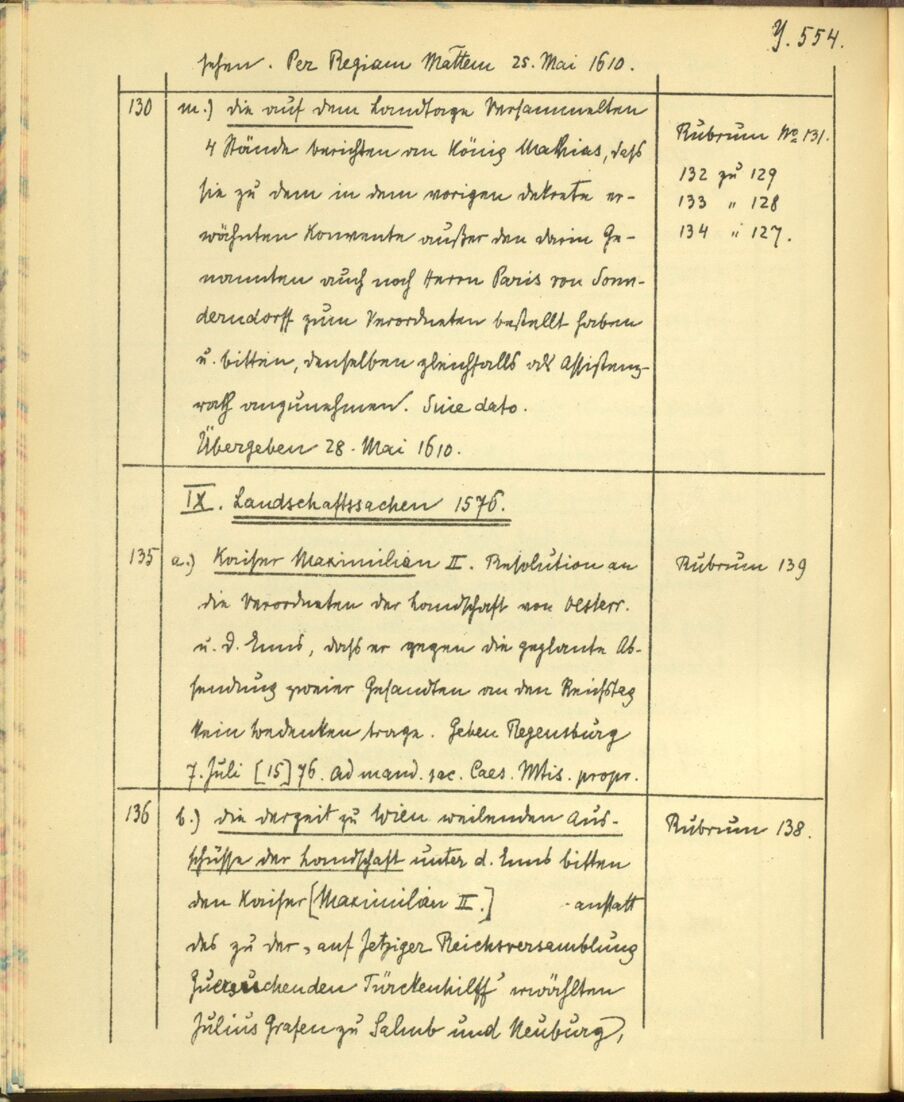 Y. 554.
sehen. Per Regiam Mattem 25. Mai 1610.
130 m.) die auf dem Landtage Versammelten
4 Stände berichten an König Mathias, dass
sie zu dem in dem vorigen Dekrete er-
wähnten Konvente außer den darin Ge-
nannten auch noch Herrn Paris von Sonn-
derndorff zum Verordneten bestellt haben
u. bitten, denselben gleichfalls als Assistenz-
rath anzunehmen. Sine dato.
Übergeben 28. Mai 1610.
Rubrum No 131.
132 zu 129
133 " 128
134 " 127.
IX. Landschaftssachen 1576.
135 a.) Kaiser Maximilian II. Resolution an
die Verordneten der Landschaft von Oesterr.
u. d. Enns, dass er gegen die geplante Ab-
sendung zweier Gesandten an den Reichstag
kein Bedenken trage. Geben Regensburg
7. Juli [15]76. Ad mand. sac. Caes. Mtis. propr.
Rubrum 139
136 b.) die derzeit zu Wien weilenden Aus-
schüsse der Landschaft unter d. Enns bitten
den Kaiser [Maximilian II.] anstatt
des zu der „auf Jetziger Reichsversamblung
Zuersuchenden Türckenhilff" erwählten
Julius Grafen zu Salmb und Neuburg,
Rubrum 138.